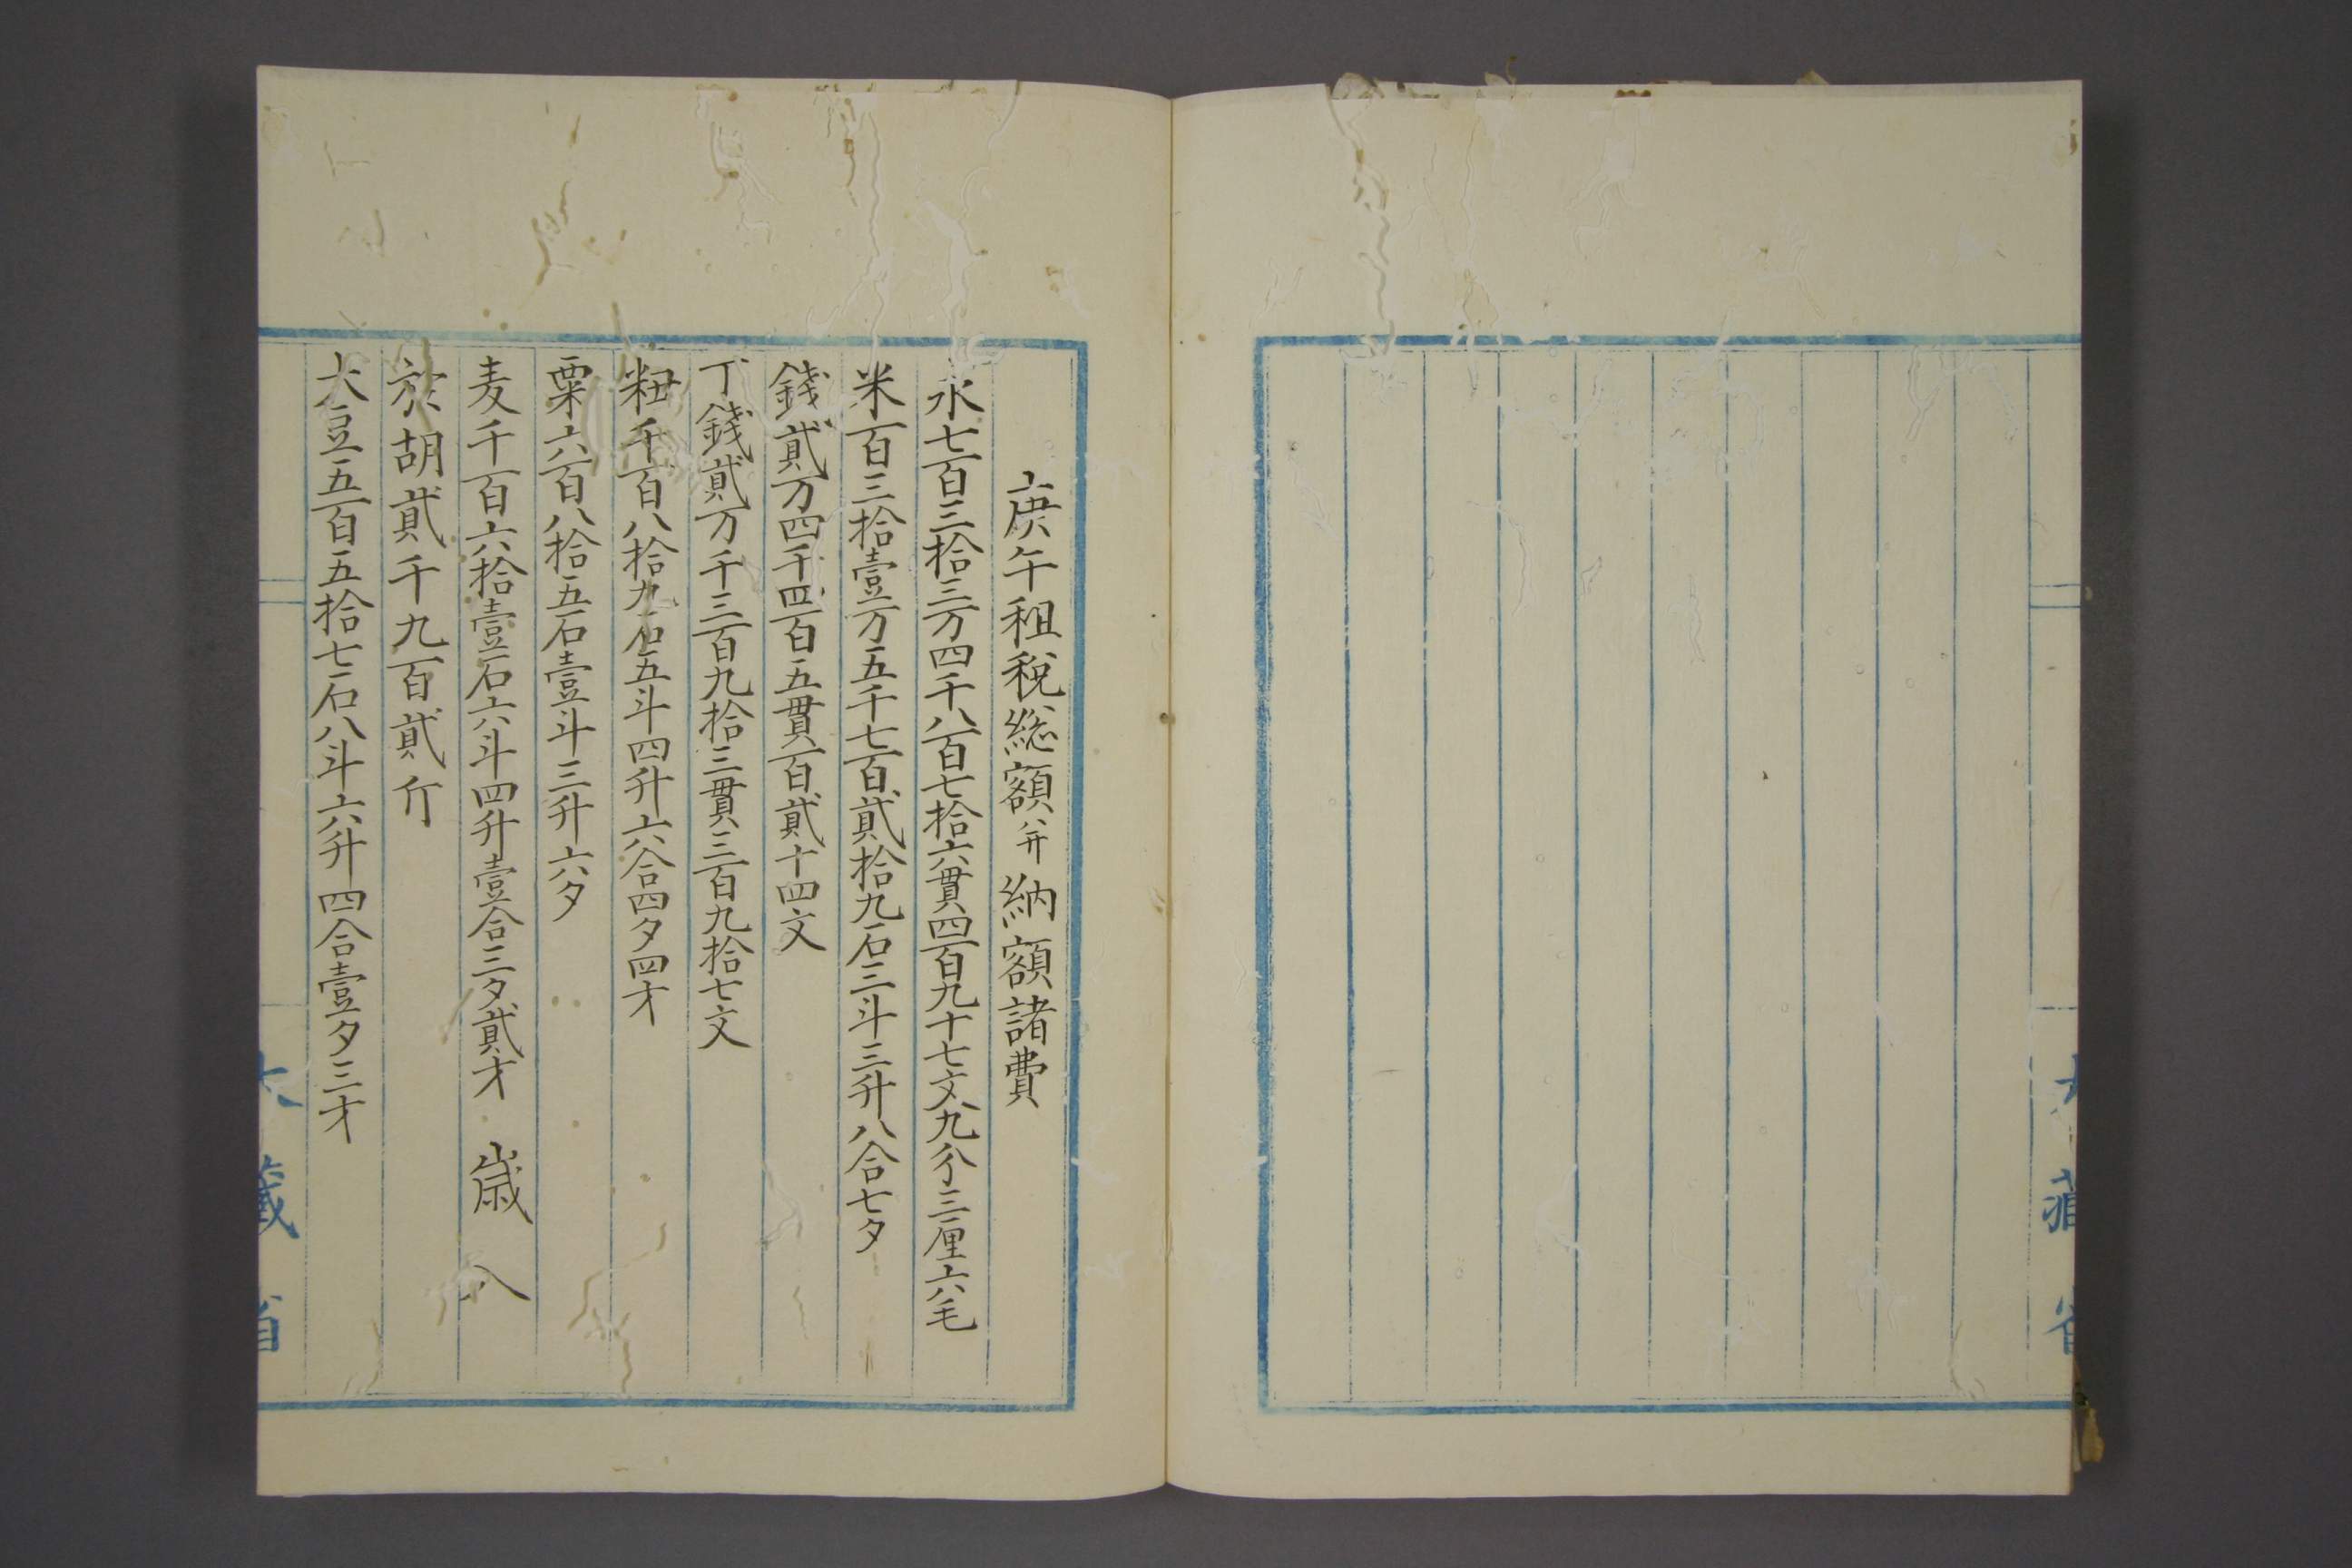 庚午租税総額并納額諸費
永七百三拾三万四千八百七拾六貫四百九十七文九分三厘六毛
米百三拾壹万五千七百貳拾九石三斗三升八合七夕
錢貳万四千四百五貫百貳十四文
丁錢貳万千三百九拾三貫三百九拾七文
籾千百八拾九石五斗四升六合四夕四才
粟六百八拾五石壹斗三升六夕
麦千百六拾壹石六斗四升壹合三夕貳才 歳入
於胡貳千九百貳斤
大豆五百五拾七石八斗六升四合壹夕三才
大藏省